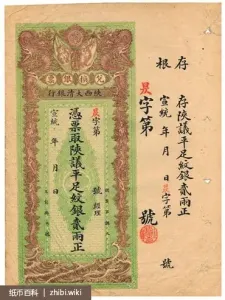 存根
存陝議平足紋銀貳兩正
宣統 年 月 日 是字第 號
是字第 號
兌換銀票
陝西大清銀行
是字第 號 經理
憑票取陝議平足紋銀貳兩正
宣統 年 月 日
纸币百科 | zhibi.wiki